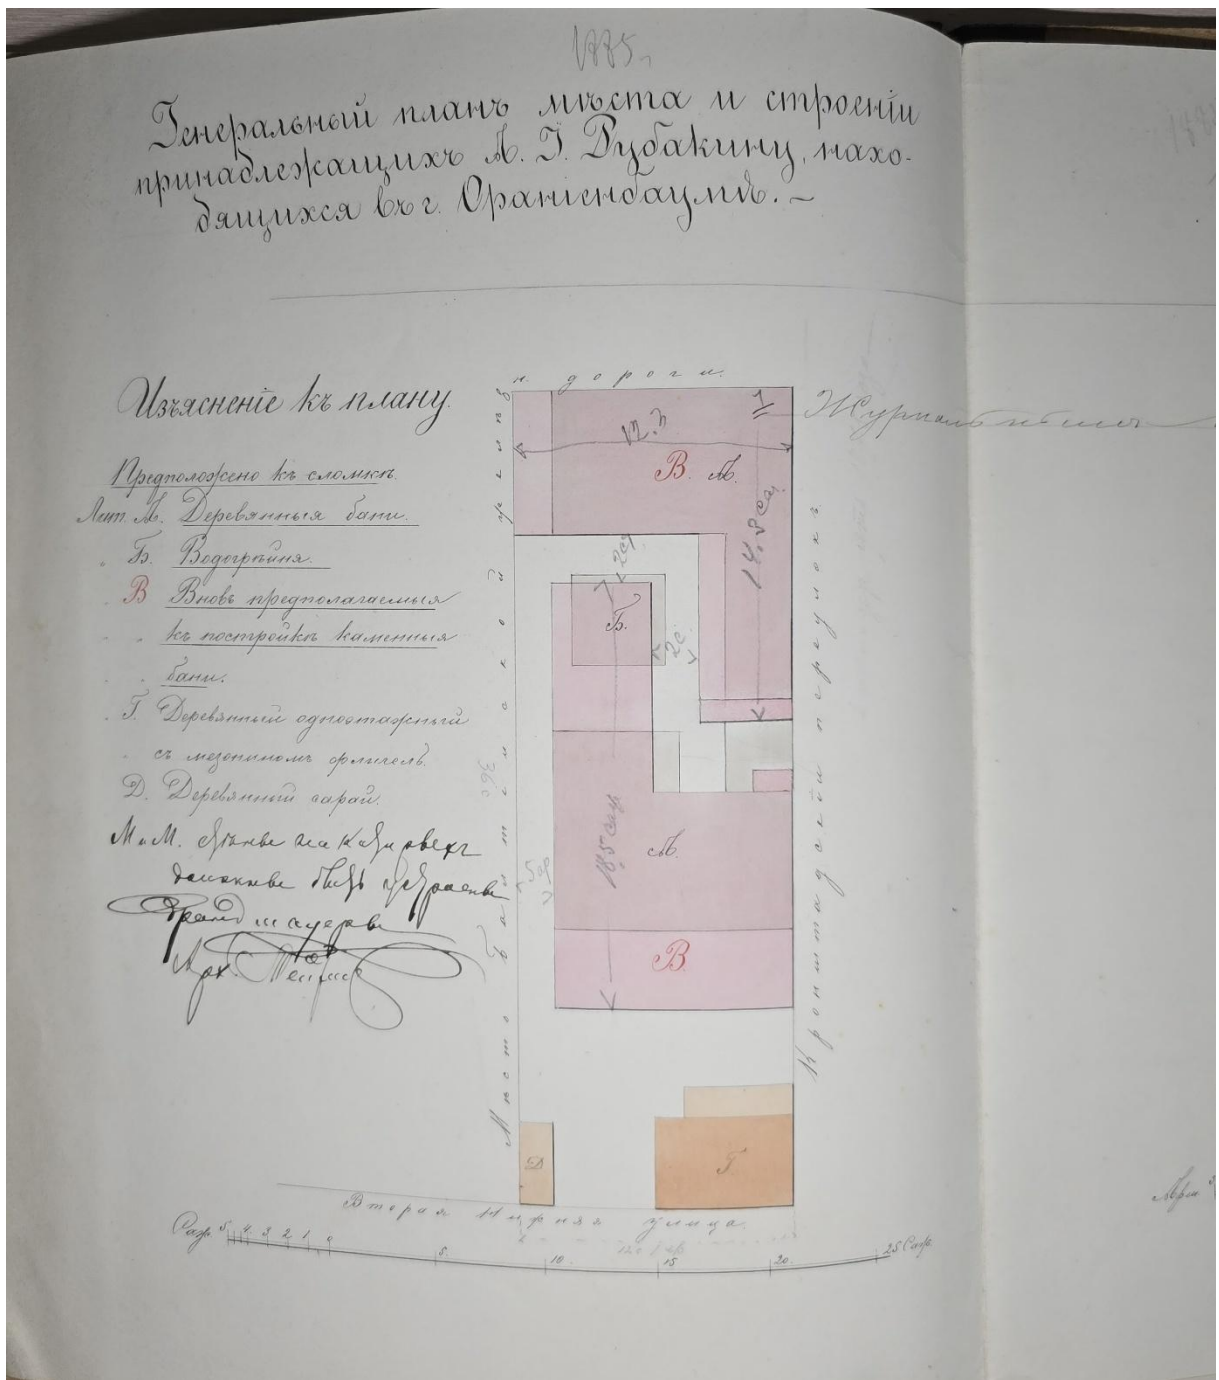 1885 г.
Генеральный планъ мѣста и строеній
принадлежащихъ А. I. Рубакину, нахо-
дящихся въ г. Ораніенбаумѣ. –
Изъясненіе къ плану.
Предположено къ сломкѣ.
Лит. А. Деревянныя бани.
„ Б. Водогрѣйня.
В Вновь предполагаемыя
„ „ къ постройкѣ каменныя
„ „ бани.
„ Г. Деревянный одноэтажный
„ съ мезониномъ флигель.
Д. Деревянный сарай.
брандмауеры
Арх.
н. дороги.
1
12.3
В. А.
14.8 саж
2 саж
Б.
2 с.
А.
18.5 саж
5 ар
В.
Д
Г.
Мѣсто Балтійской желѣзн
Кронштадскій переулокъ
Вторая улица
Саж. 5 4 3 2 1 0 5 10 15 20 25 Саж.